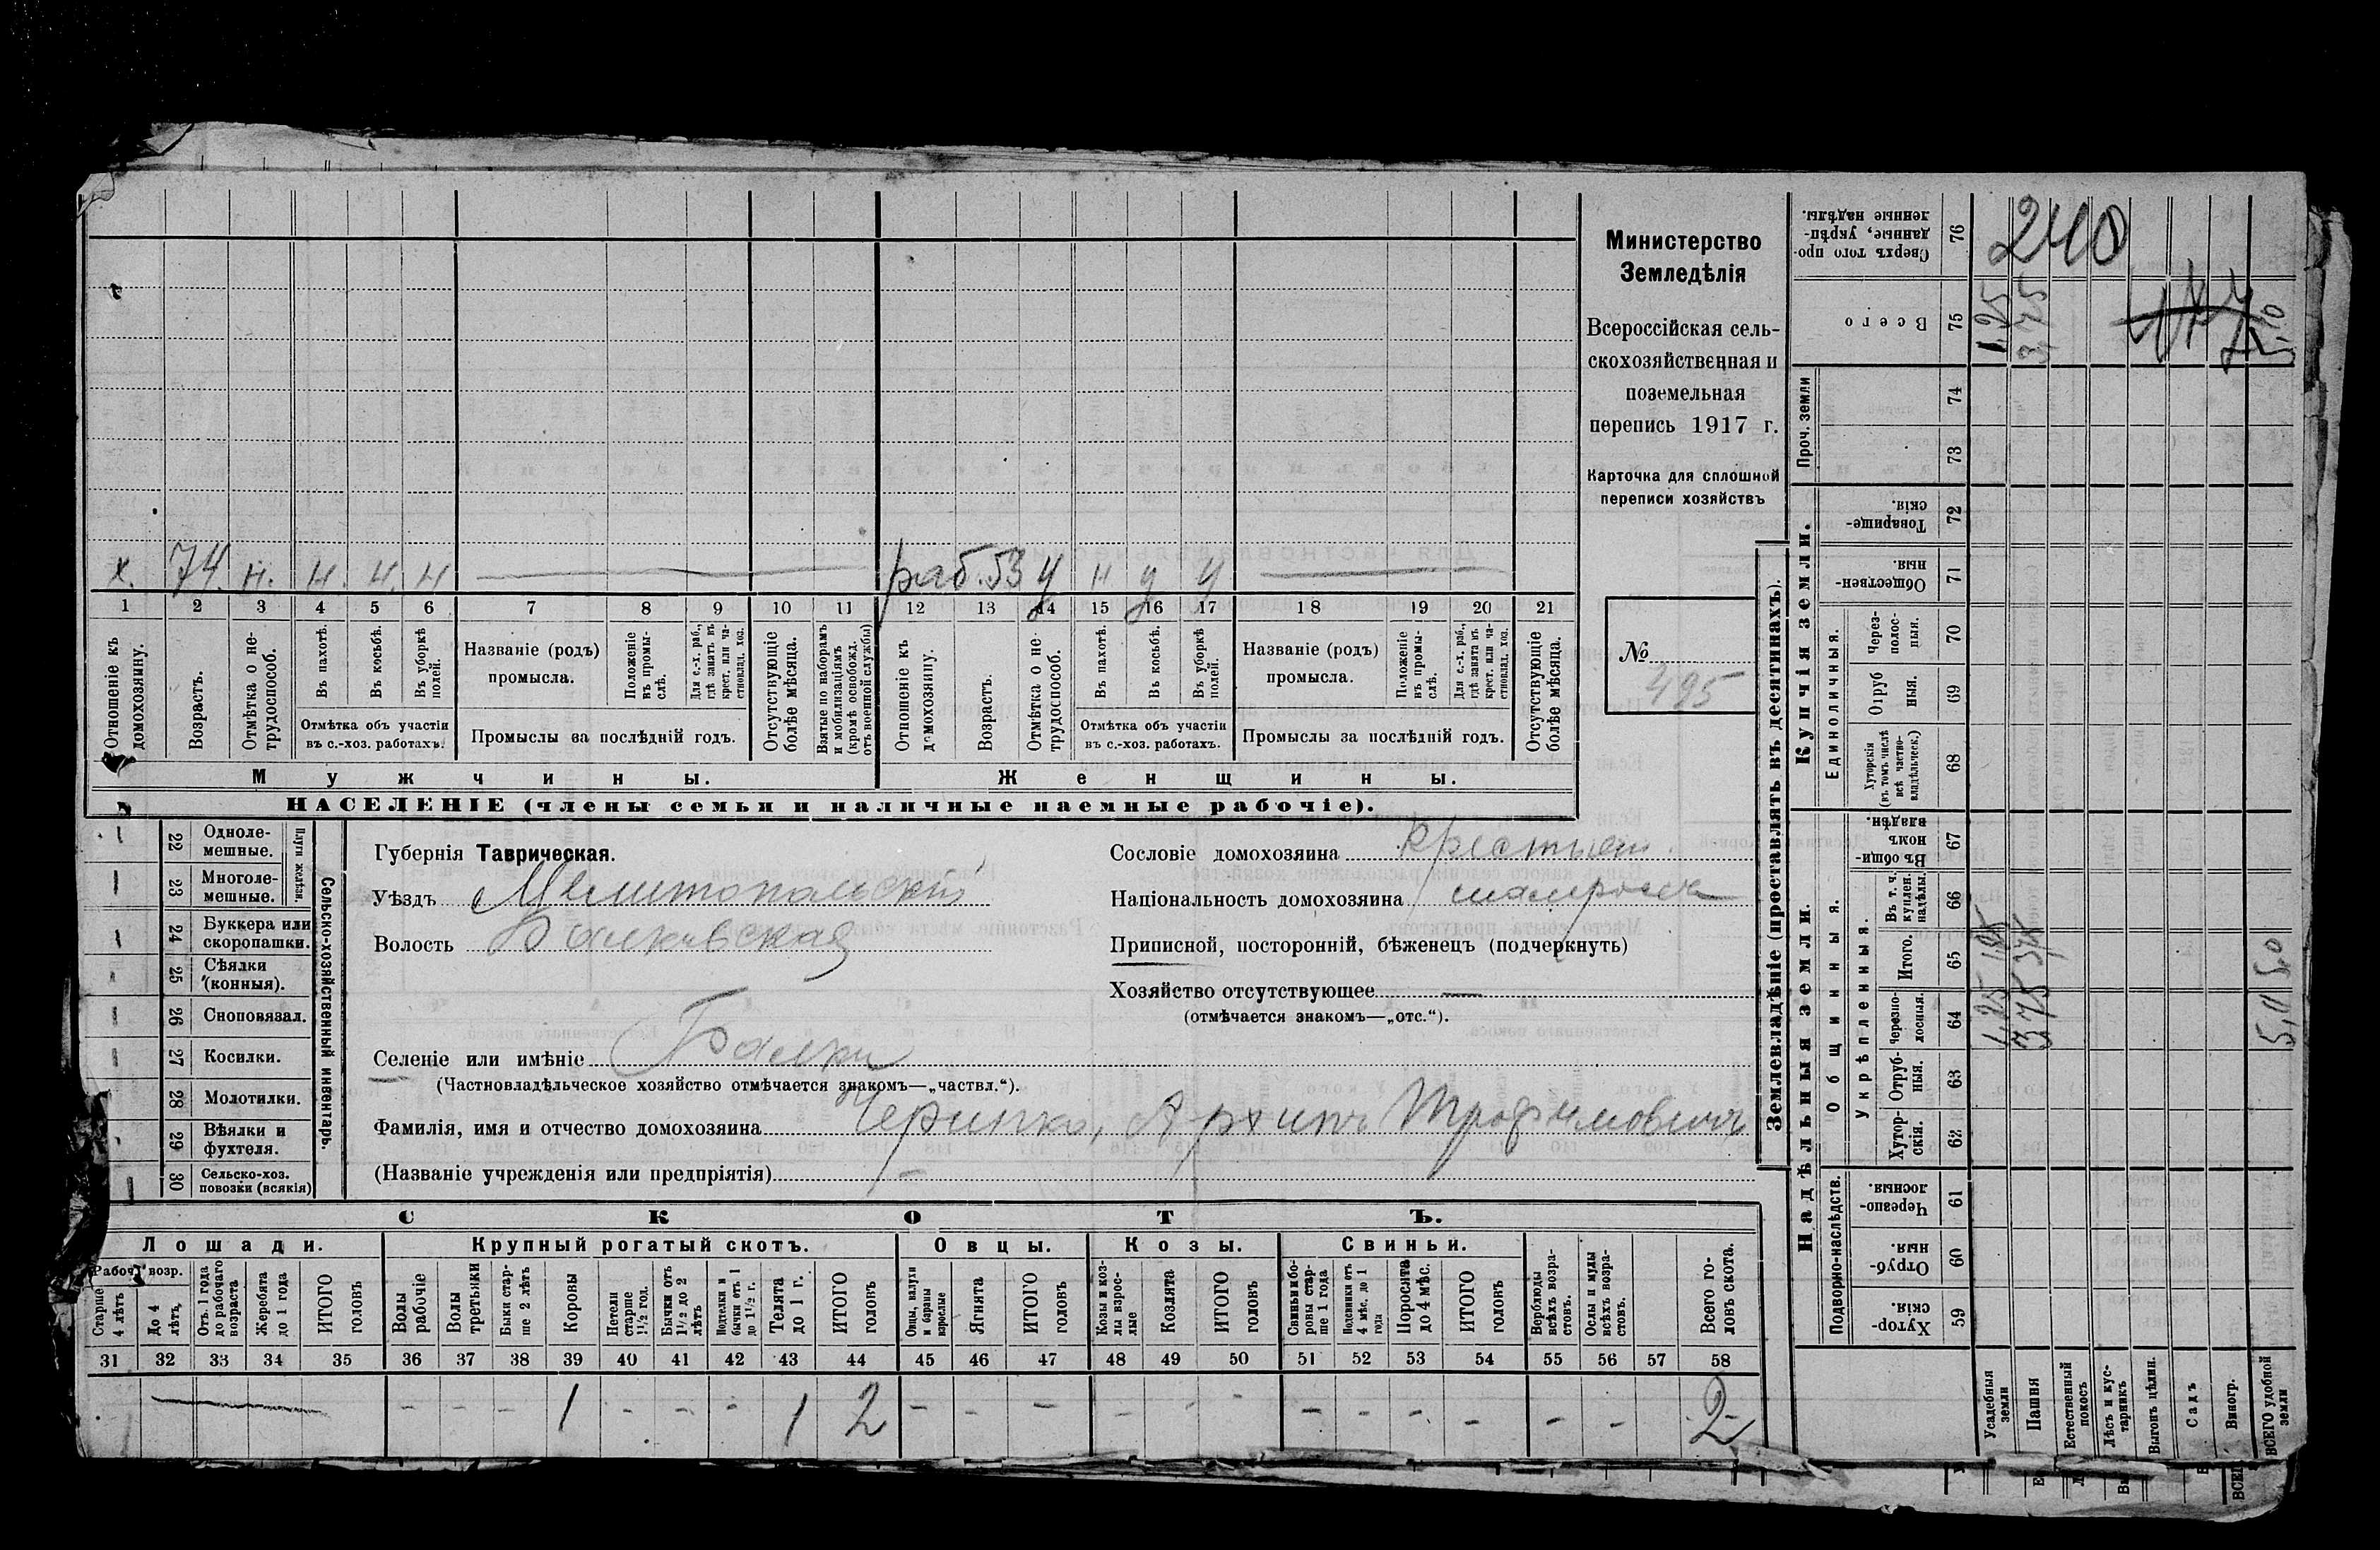 Министерство
Земледѣлія
Всероссійская сель-
скохозяйственная и
поземельная
перепись 1917 г.
Карточка для сплошной
переписи хозяйствъ
№ 495
х. 74. н. н. н. н раб. 53 у н у у
1 2 3 4 5 6 7 8 9 10 11 12 13 14 15 16 17 18 19 20 21
Отношеніе къ домохозяину.
Возрастъ.
Отмѣтка о не-трудоспособ.
Въ пахотѣ.
Въ косьбѣ.
Въ уборкѣ полей.
Отмѣтка объ участіи
въ с.-хоз. работахъ.
Названіе (родъ)
промысла.
Положеніе въ промы-слѣ.
Для с.-х. раб., гдѣ занятъ въ крест. или ча-стновлад. хоз.
Промыслы за послѣдній годъ.
Отсутствующіе болѣе мѣсяца.
Взятые по наборамъ и мобилизаціямъ (кромѣ освобожд. отъ военной службы)
Отношеніе къ домохозяину.
Возрастъ.
Отмѣтка о не-трудоспособ.
Въ пахотѣ.
Въ косьбѣ.
Въ уборкѣ полей.
Отмѣтка объ участіи
въ с.-хоз. работахъ.
Названіе (родъ)
промысла.
Положеніе въ промы-слѣ.
Для с.-х. раб., гдѣ занята въ крест. или ча-стновлад. хоз.
Промыслы за послѣдній годъ.
Отсутствующіе болѣе мѣсяца.
Мужчины.
Женщины.
НАСЕЛЕНІЕ (члены семьи и наличные наемные рабочіе).
22 Одноле-мешные.
23 Многоле-мешные.
Плуги желѣзн.
24 Буккера или скоропашки.
25 Сѣялки (конныя).
26 Сноповязал.
27 Косилки.
28 Молотилки.
29 Вѣялки и фухтеля.
30 Сельско-хоз. повозки (всякія)
Сельско-хозяйственный инвентарь.
Губернія Таврическая.
Уѣздъ Мелитопольскій
Волость Балковская
Селеніе или имѣніе Балки
(Частновладѣльческое хозяйство отмѣчается знакомъ—„частвл.“).
Фамилія, имя и отчество домохозяина Архипъ Трофимовичъ
(Названіе учрежденія или предпріятія)
Сословіе домохозяина крестьян.
Національность домохозяина малоросс
Приписной, посторонній, бѣженецъ (подчеркнуть)
Хозяйство отсутствующее —
(отмѣчается знакомъ—„отс.“).
СКОТЪ.
Лошади. Крупный рогатый скотъ. Овцы. Козы. Свиньи.
Рабоч. возр.
Старше 4 лѣтъ
До 4 лѣтъ
Отъ 1 года до рабочаго возраста
Жеребята до 1 года
ИТОГО головъ
Волы рабочіе
Волы третьяки
Быки стар-ше 2 лѣтъ
Коровы
Нетели старше 1½ год.
Бычки отъ 1½ до 2 лѣтъ
Подтелки и бычки отъ 1 до 1½ г.
Телята до 1 г.
ИТОГО головъ
Овцы, валухи и бараны взрослые
Ягнята
ИТОГО головъ
Козы и коз-лы взрос-лые
Козлята
ИТОГО головъ
Свиньи и бо-ровы стар-ше 1 года
Подсвинки отъ 4 мѣс. до 1 года
Поросята до 4 мѣс.
ИТОГО головъ
Верблюды всѣхъ возра-стовъ.
Ослы и мулы всѣхъ возра-стовъ.
Всего го-ловъ скота.
31 32 33 34 35 36 37 38 39 40 41 42 43 44 45 46 47 48 49 50 51 52 53 54 55 56 57 58
— - - - 1 - - - 1 2 - - - - - - - - - - - - 2
Землевладѣніе (проставлять въ десятинахъ).
Надѣльныя земли.
Купчія земли.
Проч. земли
Подворно-наслѣдств.
Общинныя.
Укрѣпленныя.
Единоличныя.
76 Сверхъ того про-данные, укрѣп-ленные надѣлы.
75 Всего
74
73
72 Товарище-скія.
71 Обществен-ныя.
70 Через-полос-ныя.
69 Отруб-ныя.
68 Хуторскія (въ томъ числѣ всѣ частно-владѣльческ.)
67 Въ общин-номъ владѣн.
66 Въ т. ч. куплен. надѣлы.
65 Итого.
64 черезпо-лосныя.
63 Отруб-ныя.
62 Хутор-скія.
61 Черезпо-лосныя.
60 Отруб-ныя.
59 Хутор-скія.
Усадебныя земли
Пашня
Естественный покосъ
Лѣсъ и кус-тарникъ
Выгонъ цѣлин.
Садъ
Виногр.
ВСЕГО удобной земли
240
1,25
3,75
1,25
3,75
1,25
3,75